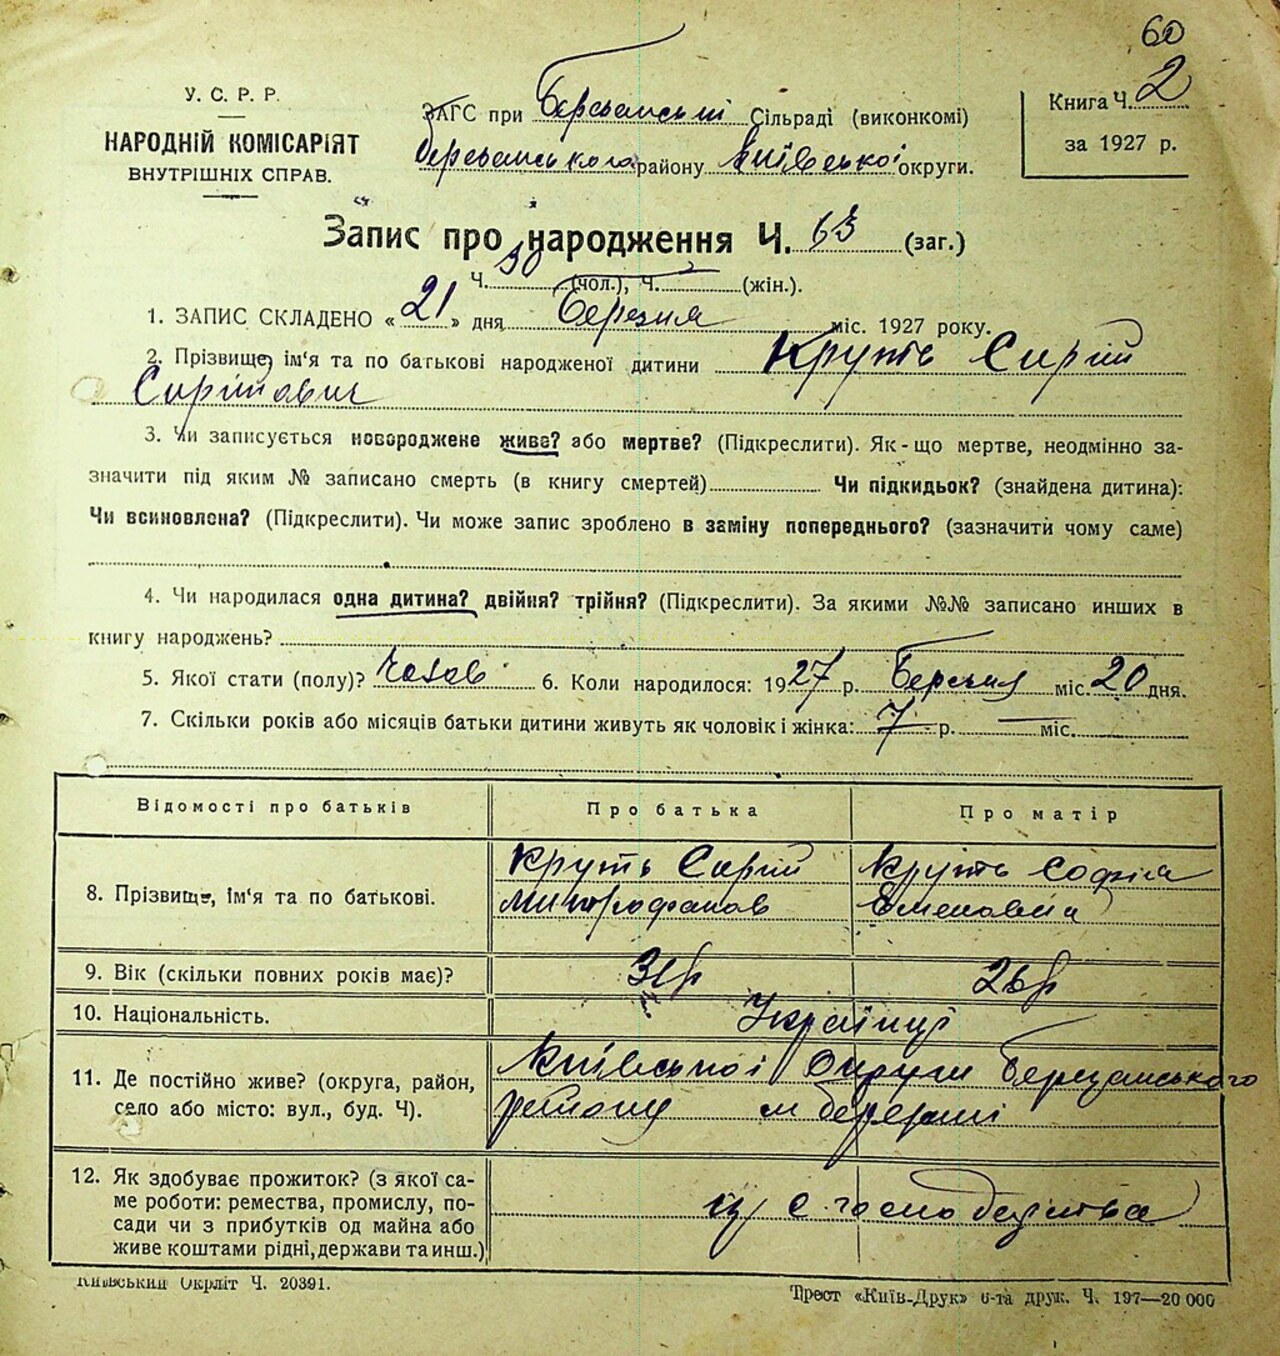 60
У. С. Р. Р.
НАРОДНІЙ КОМІСАРІЯТ
ВНУТРІШНІХ СПРАВ.
ЗАГС при Сільраді (виконкомі)
району Київської округи.
Книга Ч. 2
за 1927 р.
Запис про народження Ч. 63 (заг.)
Ч. 30 (чол.), Ч. (жін.).
1. ЗАПИС СКЛАДЕНО « 21 » дня Березня міс. 1927 року.
2. Прізвище, ім'я та по батькові народженої дитини Круть Сергій
3. Чи записується новороджене живе? або мертве? (Підкреслити). Як-що мертве, неодмінно за-
значити під яким № записано смерть (в книгу смертей) Чи підкидьок? (знайдена дитина):
Чи всиновлена? (Підкреслити). Чи може запис зроблено в заміну попереднього? (зазначити чому саме)
4. Чи народилася одна дитина? двійня? трійня? (Підкреслити). За якими №№ записано инших в
книгу народжень?
5. Якої стати (полу)? 6. Коли народилося: 1927 р. Березня міс. 20 дня.
7. Скільки років або місяців батьки дитини живуть як чоловік і жінка: 7 р. — міс.
Відомості про батьків Про батька Про матір
8. Прізвище, ім'я та по батькові. Круть Сергій Круть Софія
Митрофанов
9. Вік (скільки повних років має)? 31 р 26 р
10. Національність. Українці
11. Де постійно живе? (округа, район,
село або місто: вул., буд. Ч).
Київської Округи Березанського
району м Березані
12. Як здобуває прожиток? (з якої са-
ме роботи: ремества, промислу, по-
сади чи з прибутків од майна або
живе коштами рідні, держави та инш.)
із с. господарства
Київський Окрліт Ч. 20391.
Трест «Київ-Друк» 6-та друк. Ч. 197—20 000